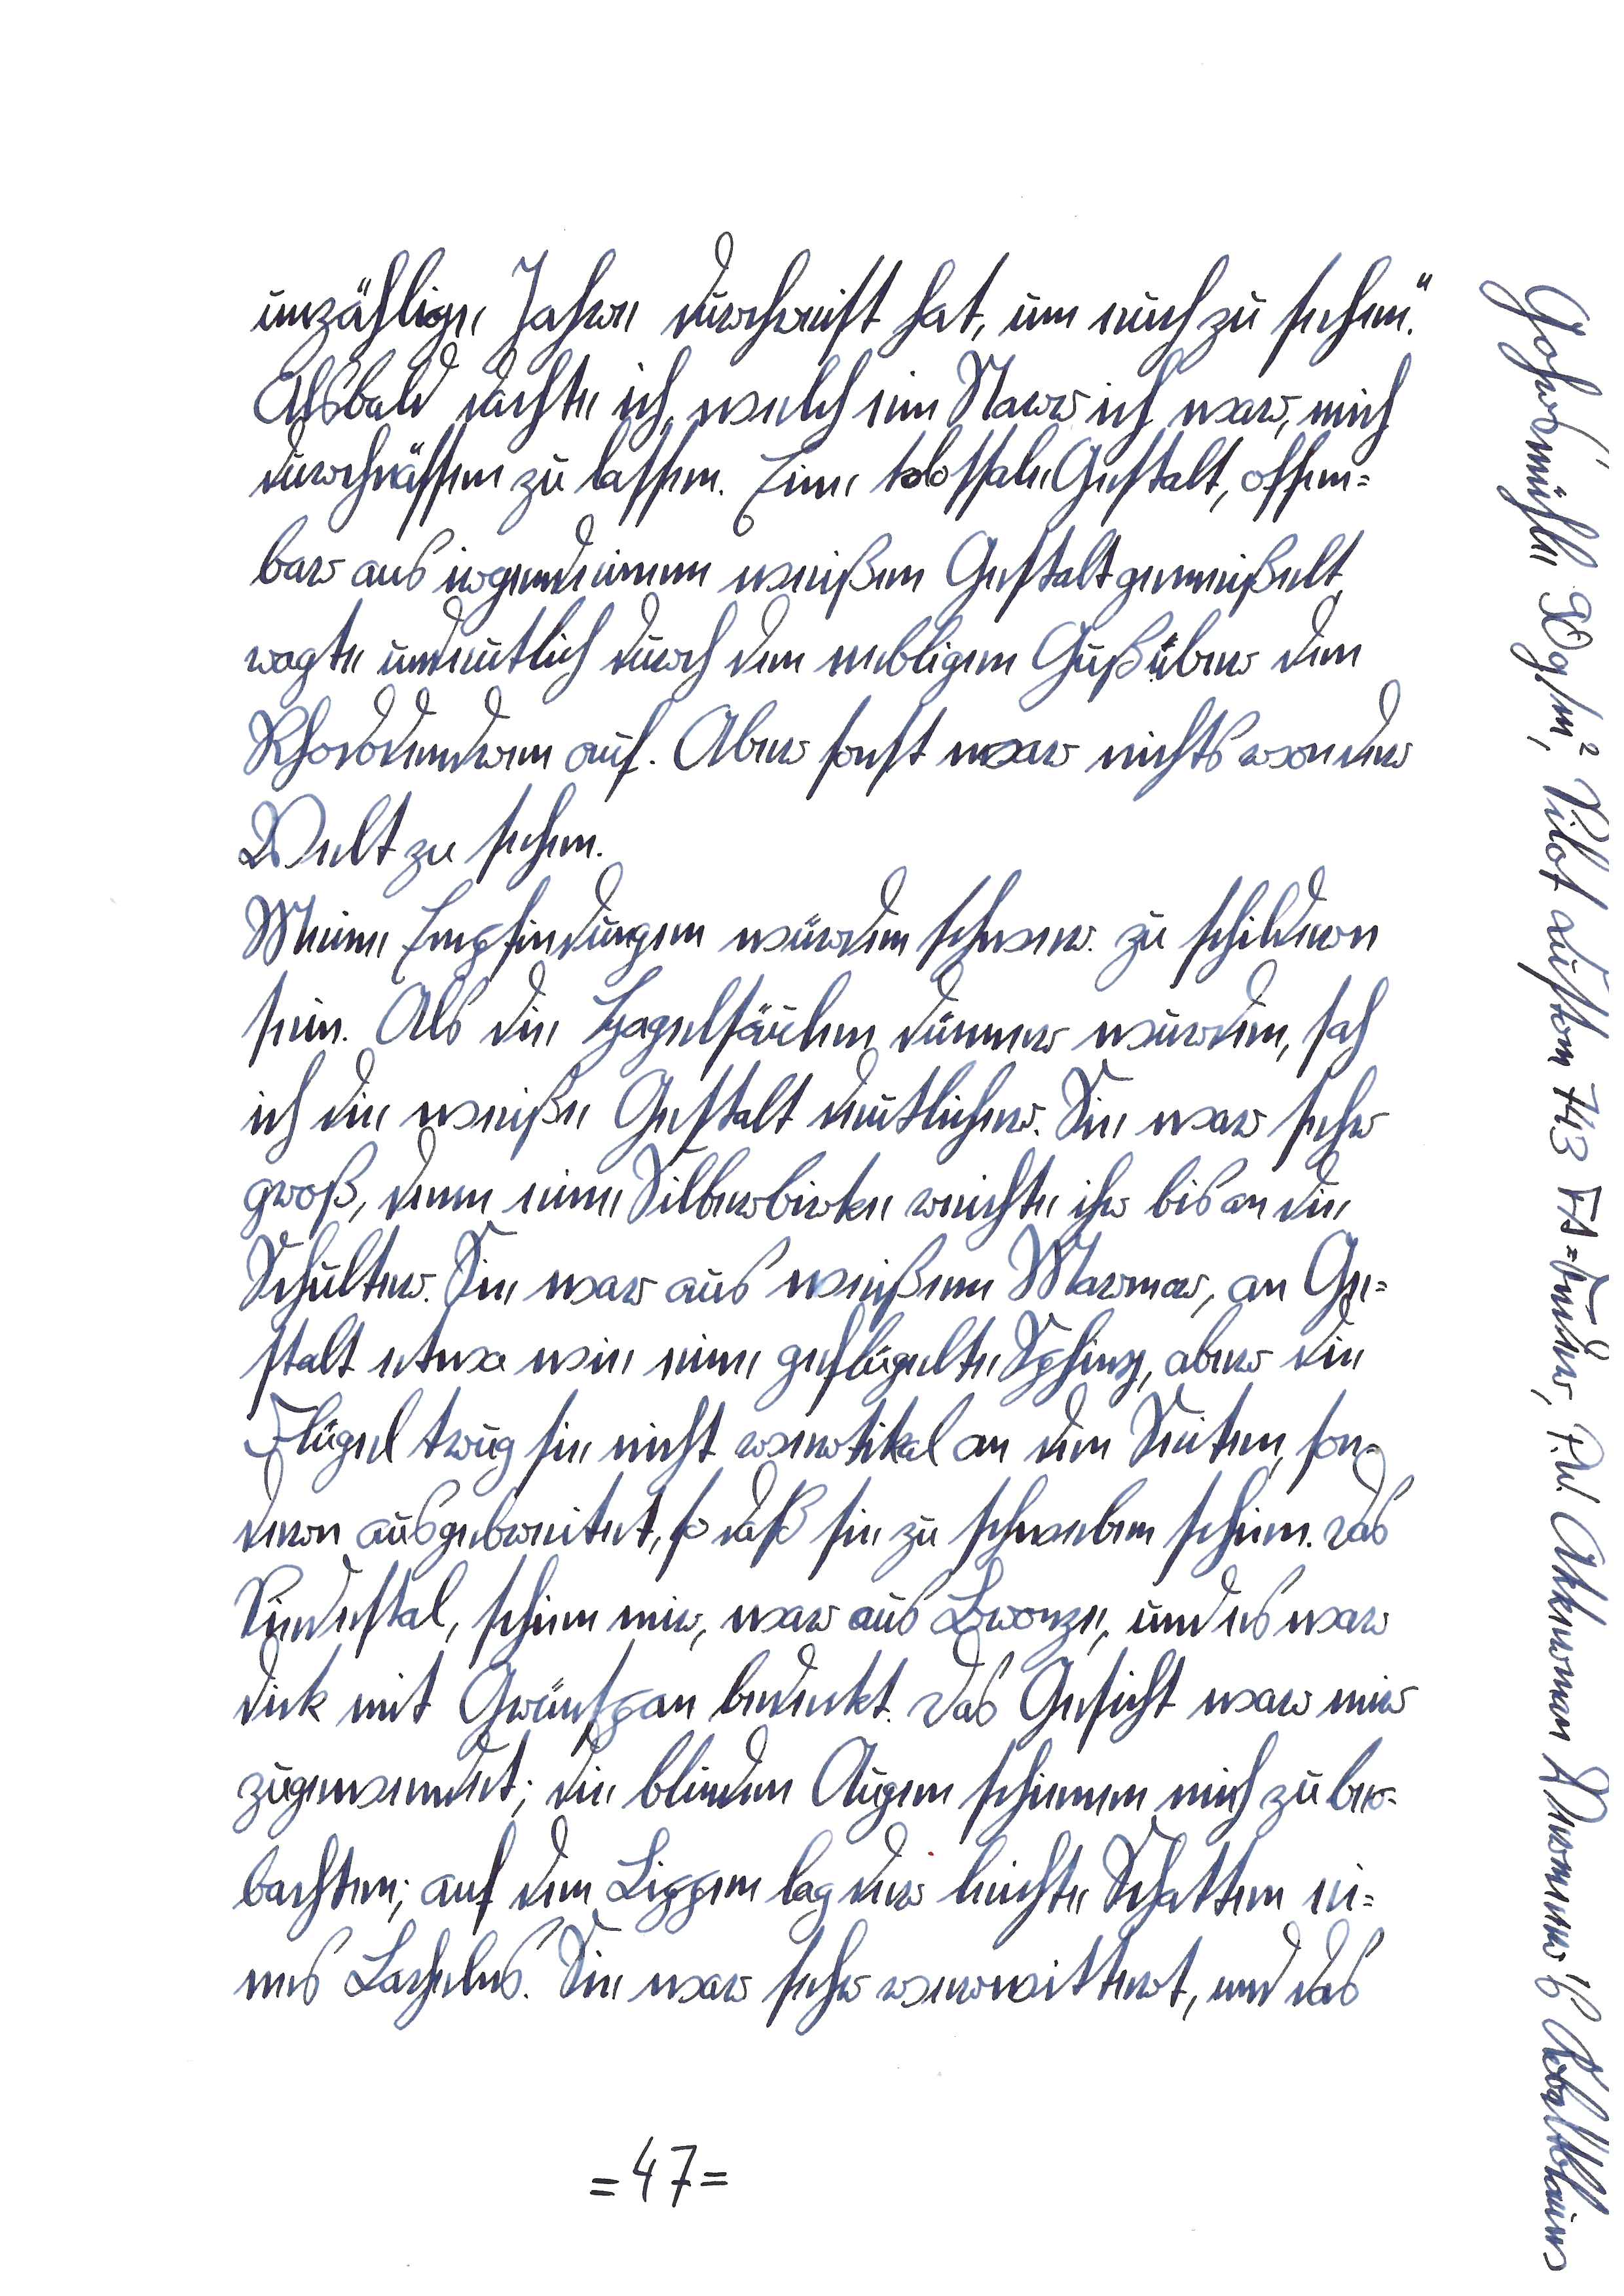 unzählige Jahre durchreist hat, um euch zu sehen."
Alsbald dachte ich, welch ein Narr ich war, mich
durchnässen zu lassen. Eine kolossale Gestalt, offen=
bar aus irgendeinem weißen Gestalt gemeißelt,
ragte undeutlich durch den nebligen Guß über den
Rhododendren auf. Aber sonst war nichts von der
Welt zu sehen.
Meine Empfindungen würden schwer zu schildern
sein. Als die Hagelsäulen dünner wurden, sah
ich die weiße Gestalt deutlicher. Sie war sehr
groß, denn eine Silberbirke reichte ihr bis an die
Schulter. Sie war aus weißem Marmor, an Ge=
stalt etwa wie eine geflügelte Sphinx, aber die
Flügel trug sie nicht vertikal an den Seiten, son=
dern ausgebreitet, so daß sie zu schweben schien. Das
Piedestal, schien mir, war aus Bronze, und es war
dick mit Grünspan bedeckt. Das Gesicht war mir
zugewendet; die blinden Augen schienen mich zu beo=
bachten; auf den Lippen lag der leichte Schatten ei=
nes Lächelns. Sie war sehr verwittert, und das
=47=
Gohrsmühle 90g/m², Pilot Custom 743 FA=Feder, P.W. Akkerman Dromenen's Kobaltblauw